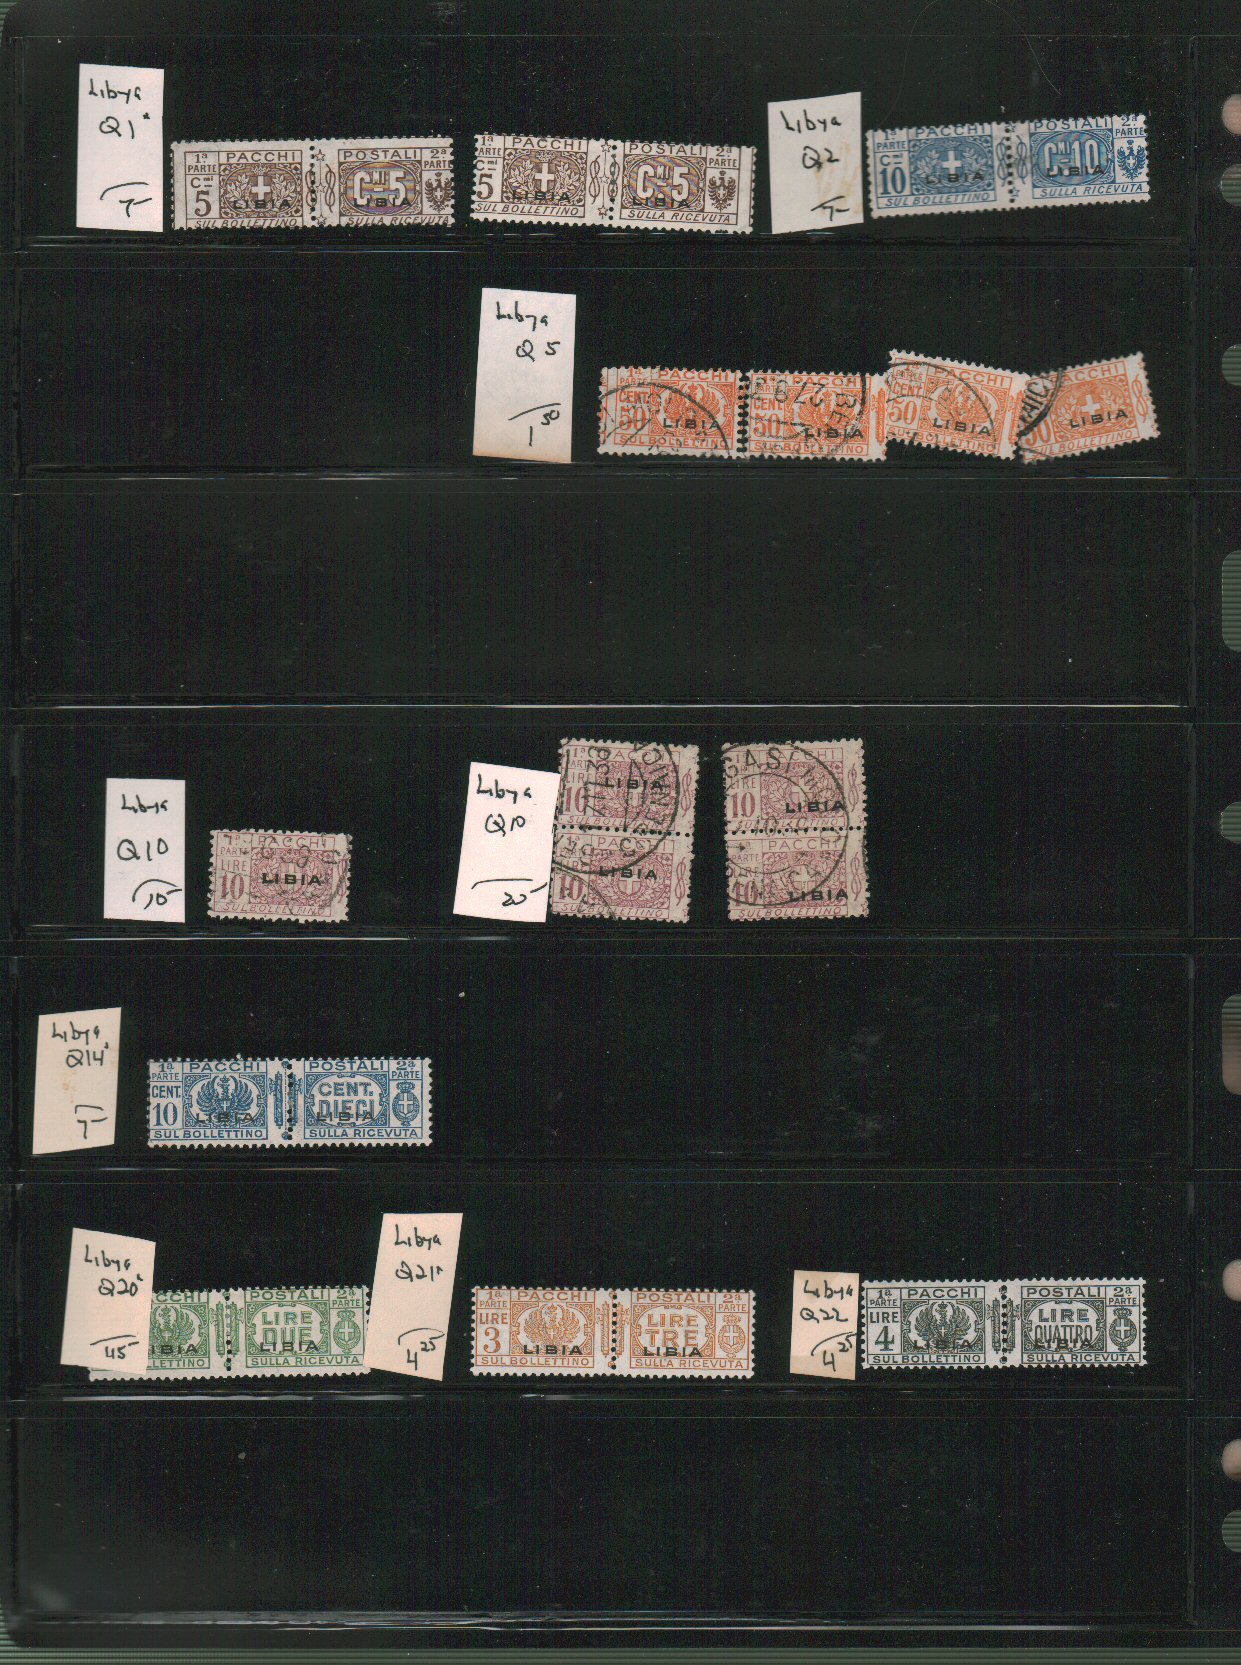 Libya
Q1a
7-
1ª PARTE PACCHI POSTALI 2ª PARTE
Cmi 5 LIBIA CMI 5 LIBIA
SUL BOLLETTINO SULLA RICEVUTA
1ª PARTE PACCHI POSTALI 2ª PARTE
Cmi 5 LIBIA CMI 5 LIBIA
SUL BOLLETTINO SULLA RICEVUTA
Libya
Q2
7-
1ª PARTE PACCHI POSTALI 2ª PARTE
Cmi 10 LIBIA CMI 10 LIBIA
SUL BOLLETTINO SULLA RICEVUTA
Libya
Q5
1 50
PARTE PACCHI
CENT. 50 LIBIA
SUL BOLLETTINO
PACCHI
CENT. 50 LIBIA
BOLLETTINO
PACCHI
CENT. 50 LIBIA
SUL BOLLETTINO
PACCHI
50 LIBIA
SUL BOLLETTINO
Libya
Q10
15-
PARTE PACCHI
LIRE 10 LIBIA
SUL BOLLETTINO
Libya
Q10
25-
1ª PACCHI
LIRE 10 LIBIA
SUL BOLLETTINO
PACCHI
10 LIBIA
SUL BOLLETTINO
1ª PACCHI
LIRE 10 LIBIA
SUL BOLLETTINO
PARTE PACCHI
LIRE 10 LIBIA
SUL BOLLETTINO
Libya
Q14a
7-
1ª PARTE PACCHI POSTALI 2ª PARTE
CENT. 10 LIBIA CENT. DIECI LIBIA
SUL BOLLETTINO SULLA RICEVUTA
Libya
Q20a
45-
POSTALI 2ª PARTE
LIBIA LIRE DUE LIBIA
BOLLETTINO SULLA RICEVUTA
Libya
Q21a
4 25
1ª PARTE PACCHI POSTALI 2ª PARTE
LIRE 3 LIBIA LIRE TRE LIBIA
SUL BOLLETTINO SULLA RICEVUTA
Libya
Q22
4 25
1ª PARTE PACCHI POSTALI 2ª PARTE
LIRE 4 LIBIA LIRE QUATTRO LIBIA
SUL BOLLETTINO SULLA RICEVUTA